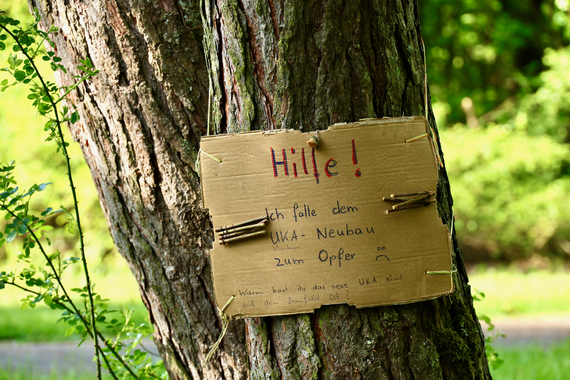 Hilfe!
Ich falle dem
UKA-Neubau
zum Opfer
Warum baut ihr das neue UKA nicht
auf den Ost!